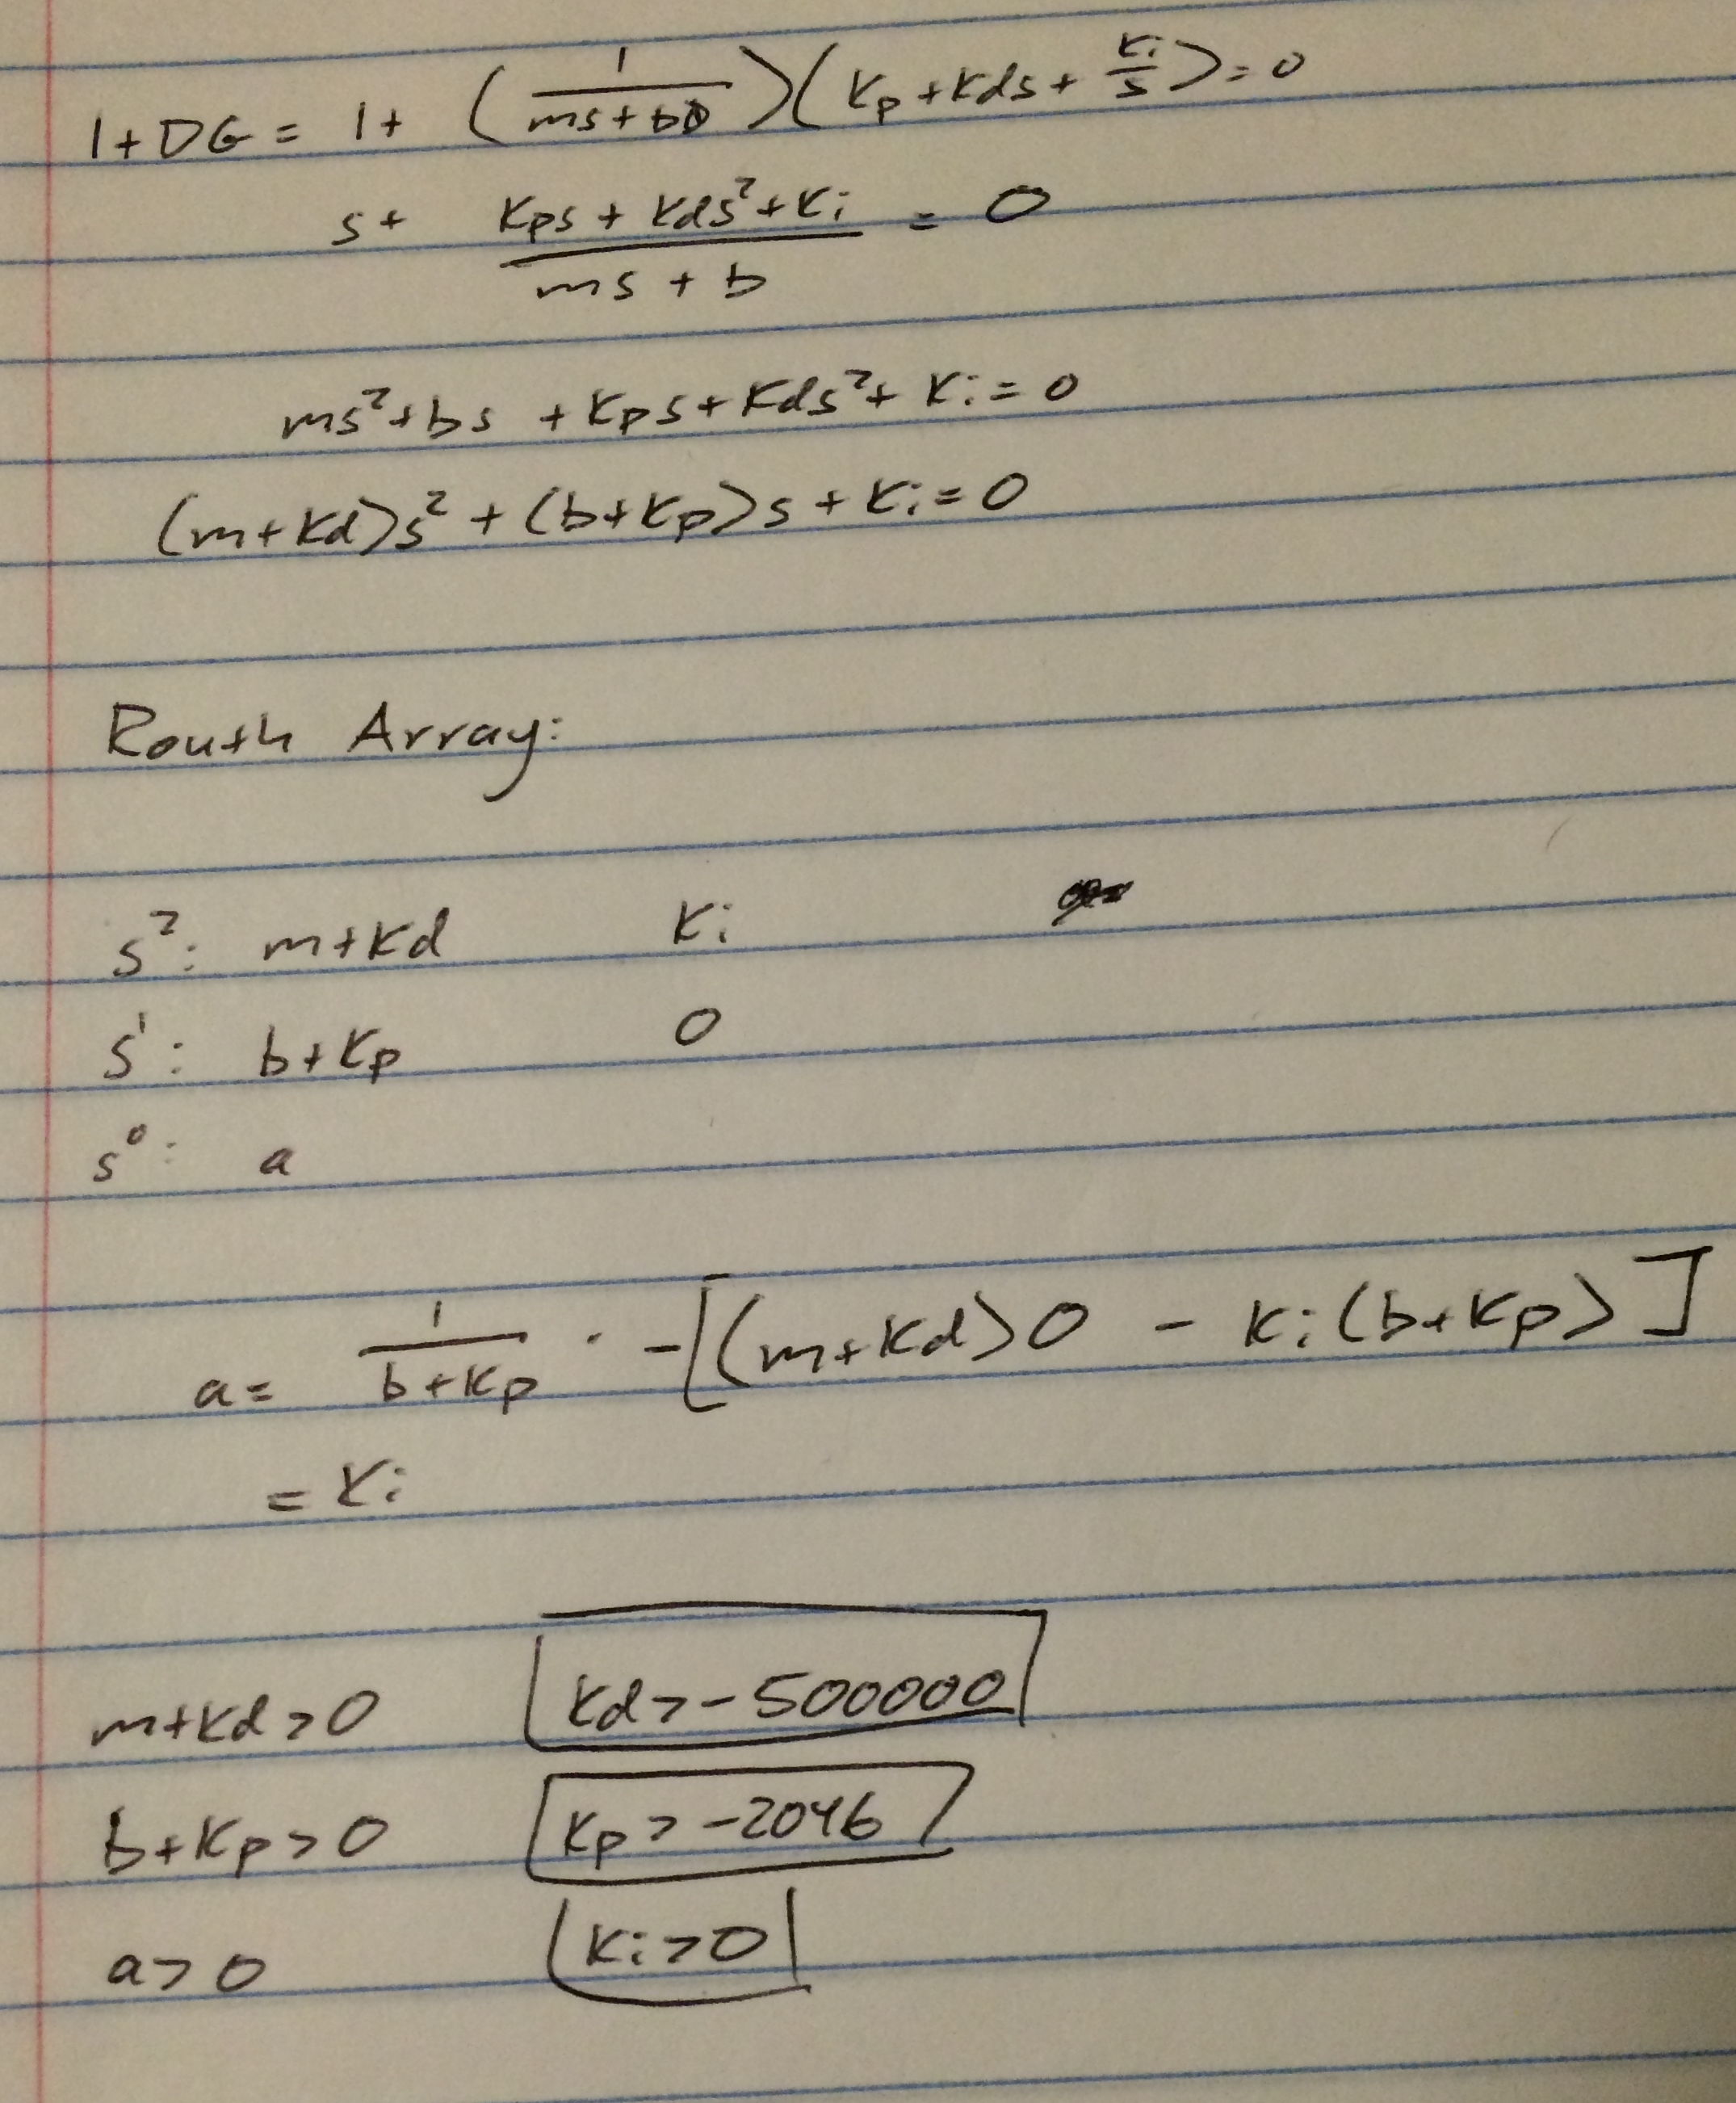 1+DG = 1+ (1/(ms+b))(Kp+Kds+Ki/s)=0
s+ (Kps+Kds²+Ki)/(ms+b) = 0
ms²+bs +Kps+Kds²+Ki=0
(m+Kd)s²+(b+Kp)s+Ki=0
Routh Array:
s²: m+Kd Ki
s¹: b+Kp 0
s⁰: a
a= 1/(b+Kp) · -[(m+Kd)0 - Ki(b+Kp)]
= Ki
m+Kd>0 Kd>-500000
b+Kp>0 Kp>-2046
a>0 Ki>0